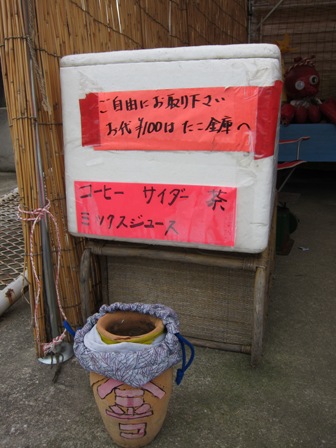 ご自由にお取り下さい
お代¥100は たこ金庫へ
コーヒー サイダー 茶
ミックスジュース